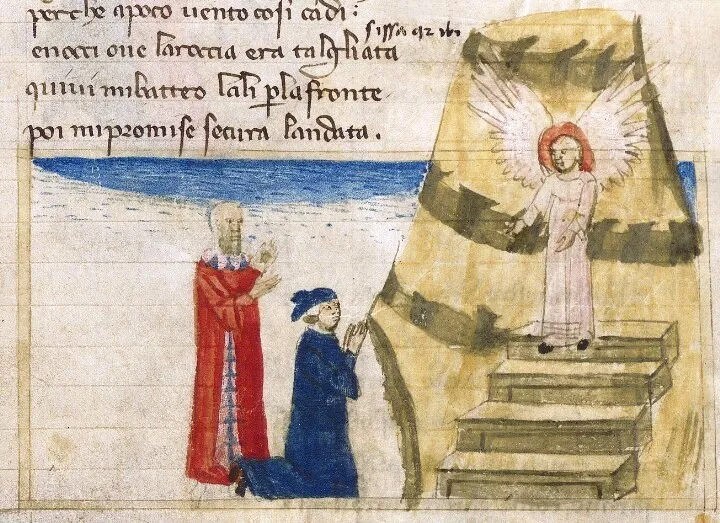 perche apoco uento cosi cadi:
enocci oue laroccia era talgliata
quiui mibatteo lali ꝑlafronte
poi mi promise secura landata.